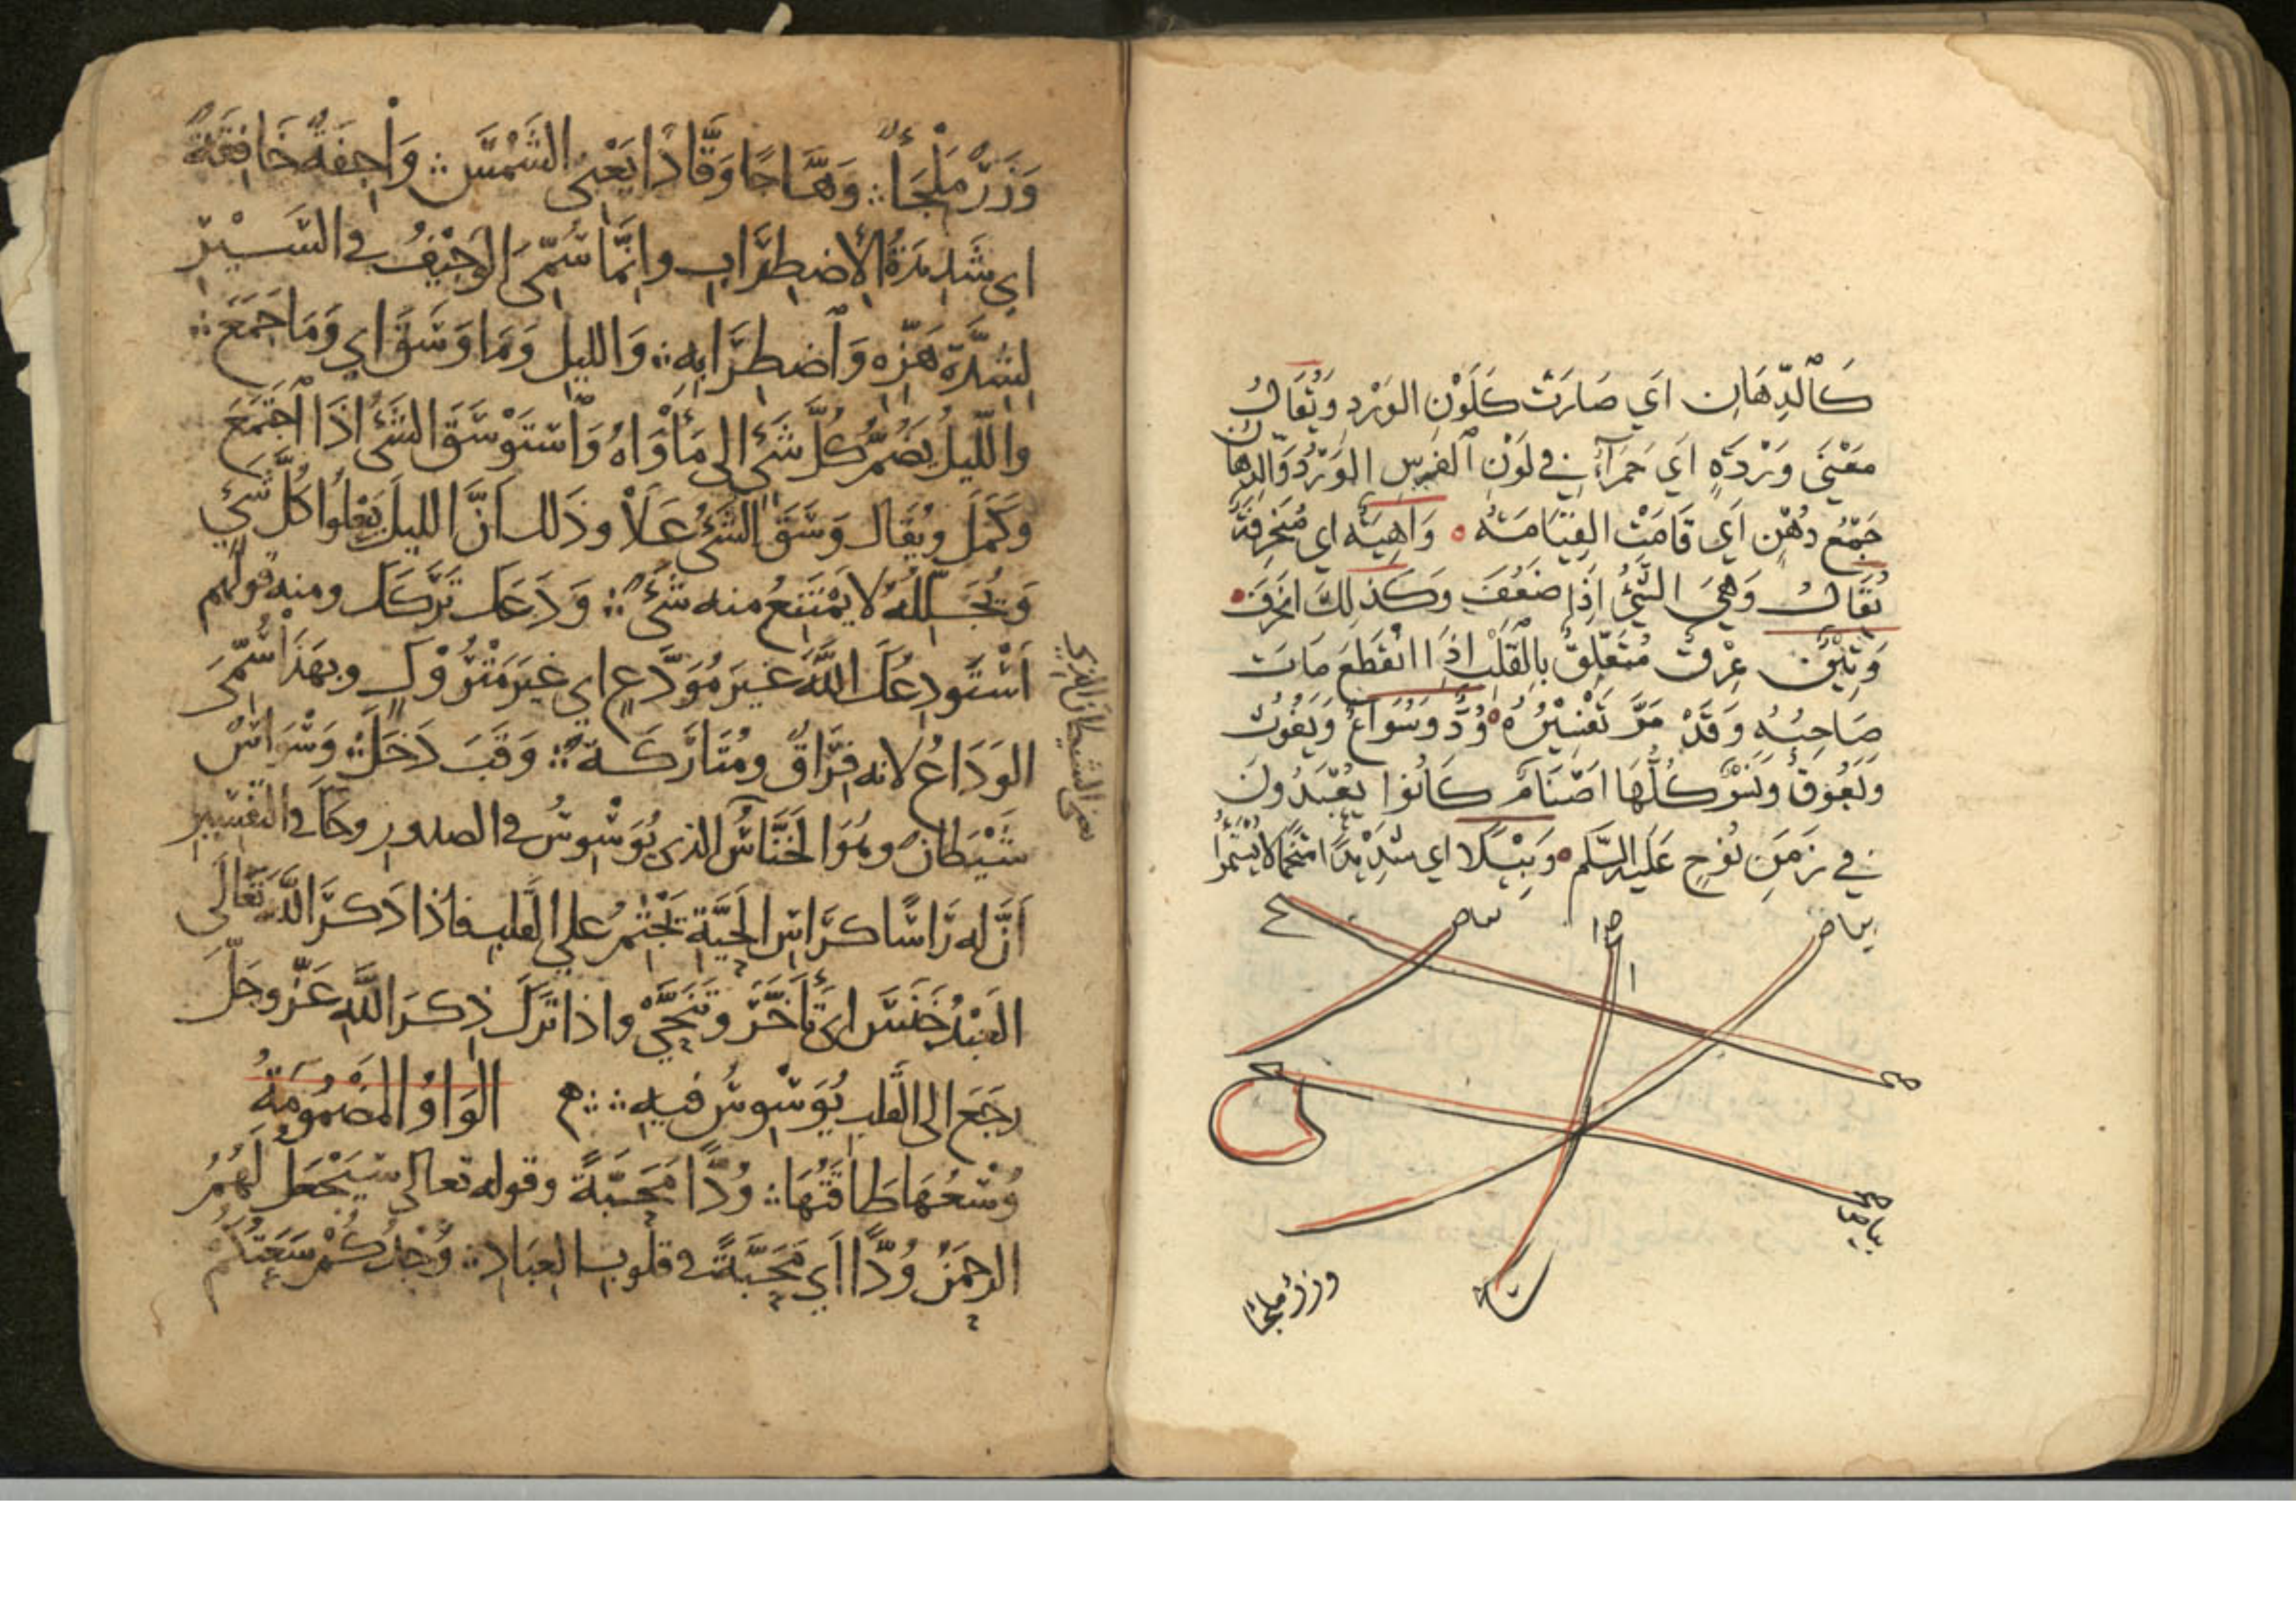 كَالدِّهَانِ اَي صَارَتْ كَلَوْنِ الوَرْدِ وَيُقَالُ
مَعْنَى وَرْدَةٍ اَي حَمرَآءَ في لَوْنِ الفَرَسِ الوَرْدِ وَالدِهَانُ
جَمْعُ دُهْنٍ اَي قَامَتْ القِيَامَتُه ه وَاهِيَة اي مُنخَرِقَةٌ
يُقَالُ وَهِيَ الشَّيْءُ اِذَا ضَعُفَ وَكَذٰلِكَ انخَرَقَ
وَتِيْنَ عِرْقٌ مُتَعَلِّقٌ بِالْقَلْبِ اِذَا انْقَطَعَ مَاتَ
صَاحِبُه وَقَدْ مَرَّ تَفْسِيْرُهُ ه وُدَّ وَسُوَاعٌ وَيَغُوْثَ
وَيَعُوقَ وَنَسْرٌ كُلُّهَا اَصْنَامٌ كَانُوا يُعْبَدُونَ
في زَمَنِ نُوْحٍ عَلَيْهِ السَّلم ه وَبِيْلًا اي شَدِيْدًا مُتَّخِمًا لا يُسْتَمْرَأُ
بياض
صح
صح
بياض
وزر ملجأ
وَزَرَ مَلْجَأً وَهَّاجًا وَقَّادًا يَعْنِى الشَّمْسَ وَاجِفَةٌ خَافِقَةٌ
اي شَدِيدَةُ الاِضطِرَابِ وانَّمَا سُمِّىَ الوَجِيْفُ في السَّيْرِ
لِشِدَّةِ هَزِّه وَاضطِرَابِهِ وَالليلِ وَمَا وَسَقَ اي وَمَا جَمَعَ
والّليلُ يَضُمُّ كُلَّ شَيْءٍ الى مَأوَاهُ وَاسْتَوْسَقَ الشَىْءُ اذَا اجْتَمَعَ
وكَمَلَ ويُقَال وَسَقَ الشَىْءُ عَلَاْ وذَلك اَنَّ الليلَ يَعْلُوا كُلَّ شَيْءٍ
وَيُجَلِّلُهُ لا يَمْتَنِعُ منه شَىْءٌ وَدَعَكَ تَرَكَكَ ومنه قولهم
اَسْتَودِعُكَ اللَّهَ غيرَ مُوَدَّعٍ اي غيرَ مَتْرُوْكٍ وبهَذَا سُمِّىَ
الوَدَاعُ لانه فِرَاقٌ ومُتَارَكَةٌ وَقَبَ دَخَلَ وَسْوَاسْ
شَيْطَانٌ وهُوَ الخَنَّاسُ الذي يُوَسْوِسُ في الصدورِ وجَآ في التفسِيرِ
اَنَّ له رَاسًا كرَاسِ الحَيَّةِ يَجْثِمُ على القلب فاذا ذَكَرَ اللَّهَ تَعَالَى
العَبْدُ خَنَسَ اى تَأَخَّرَ وتَنَحَّىْ واذا تَرَكَ ذِكرَ اللَّهِ عَزَّ وجَلَّ
رجَعَ الى القلب يُوَسْوِسُ فيه الوَاوُ المَضْمُومَةُ
وُسْعُهَا طَاقَتُهَا وُدًّا مَحَبَّةً وقوله تعالى سَيَجْعَلُ لَهُمُ
الرحمَنُ وُدًّا اَي مَحَبَّةً في قلُوبِ العِبَادِ وُجْدِكُمْ سَعَتِكُم
يعنى الشيطان الذى